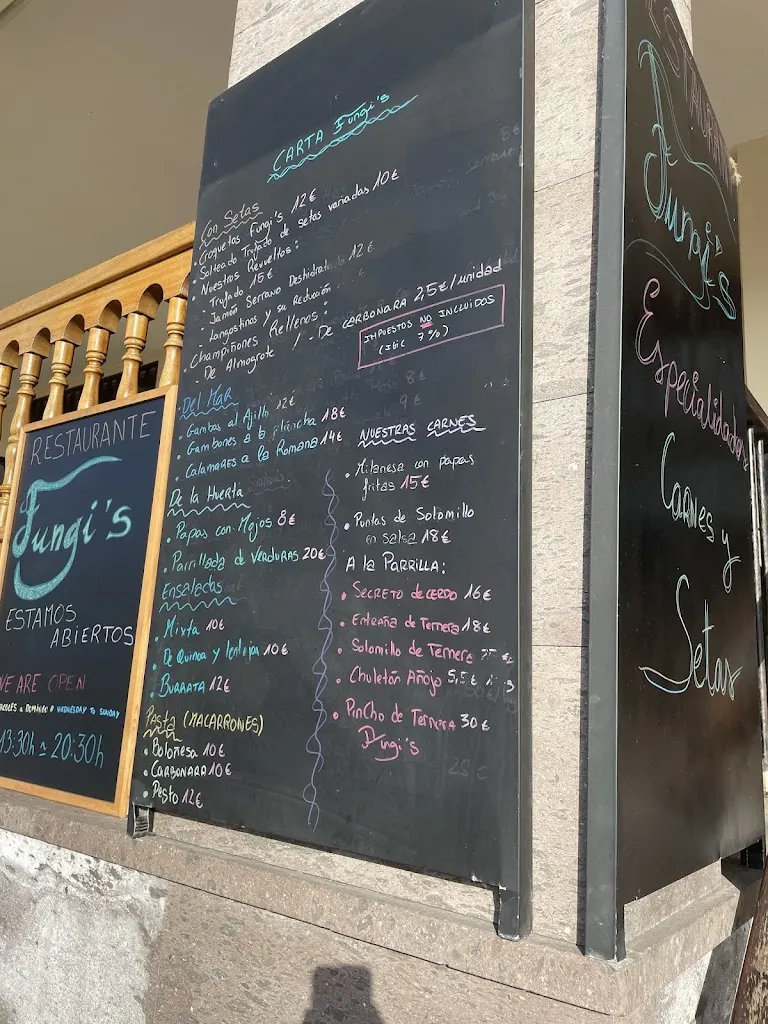 CARTA Fungi's
Con Setas
• Croquetas Fungi's 12€
• Salteado Trufado de setas variadas 10€
• Nuestros Revueltos:
- Trufado 15€
- Jamón Serrano Deshidratado 12€
- Langostinos y su Reducción
• Champiñones Rellenos:
- De Almogrote / - De CARBONARA 2,5€/unidad
IMPUESTOS NO INCLUIDOS
(IGIC 7%)
Del Mar
• Gambas al Ajillo 12€
• Gambones a la plancha 18€
• Calamares a la Romana 14€
De la Huerta
• Papas con Mojos 8€
• Parrillada de VERDURAS 20€
Ensaladas
• Mixta 10€
• De Quinoa y lentejas 10€
• BURRATA 12€
Pasta (MACARRONES)
• Boloñesa 10€
• CARBONARA 10€
• Pesto 12€
NUESTRAS CARNES
• Milanesa con papas
fritas 15€
• Puntas de Solomillo
en salsa 18€
A la PARRILLA:
• SECRETO de CERDO 16€
• Entraña de Ternera 18€
• Solomillo de Ternera
• Chuletón Añojo 5,5€
• PinCho de TERNERA 30€
Fungi's
RESTAURANTE
Fungi's
ESTAMOS
ABIERTOS
WE ARE OPEN
DOMINGO # WEDNESDAY TO SUNDAY
13:30h a 20:30h
RESTAURANTE
Fungi's
Especialidades
Carnes y
Setas